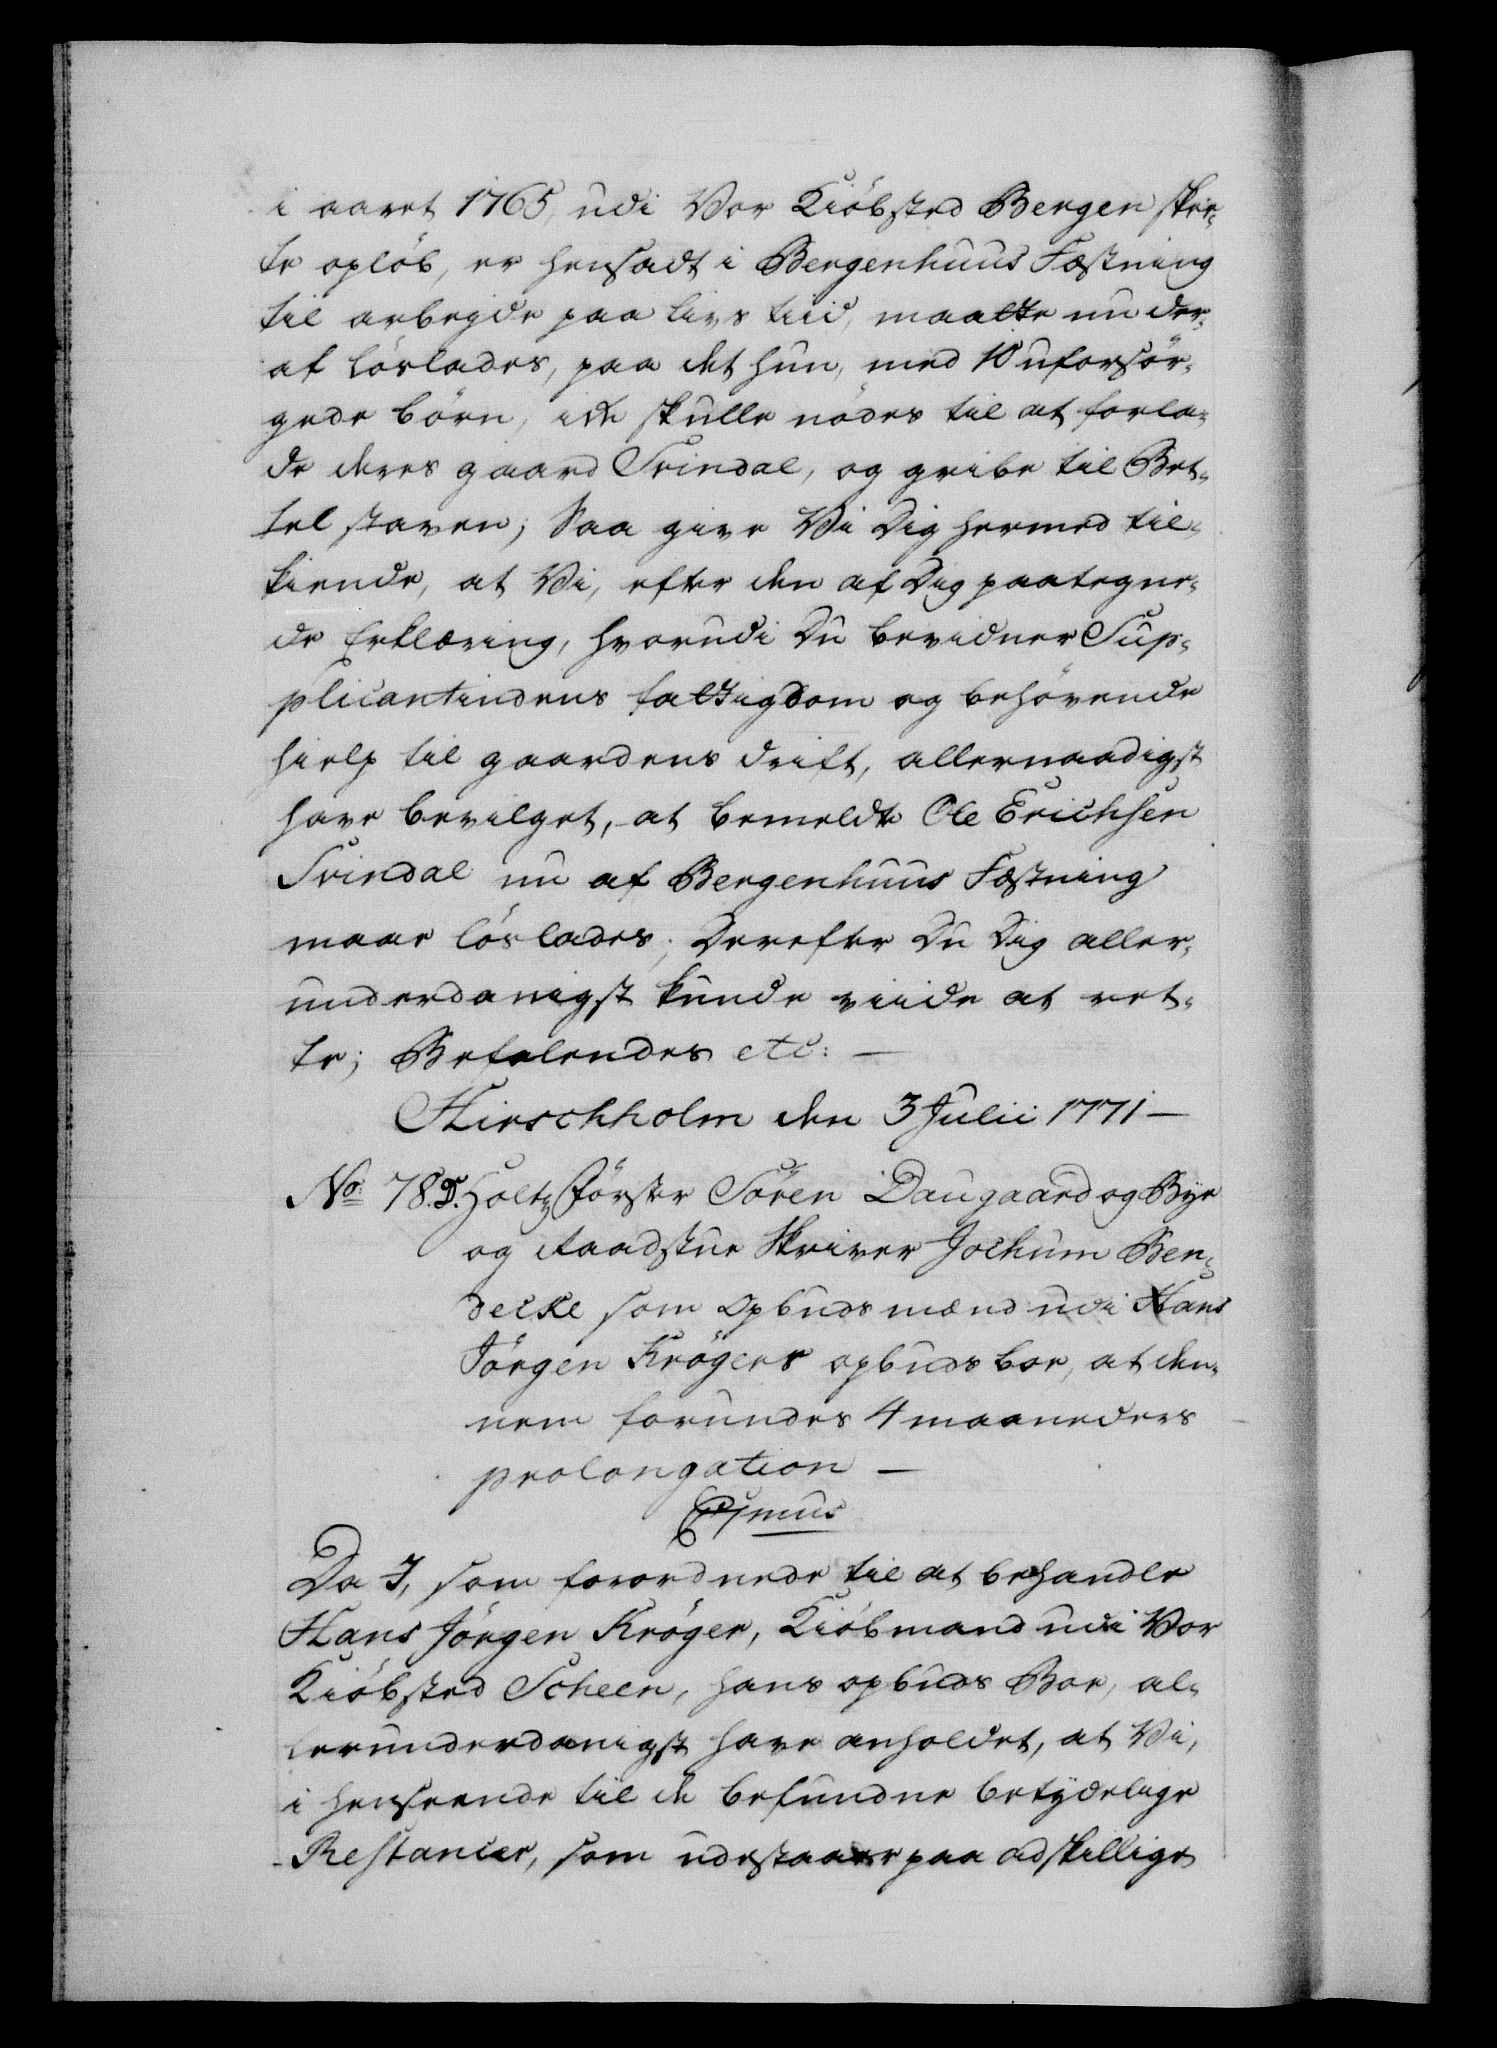 i aaret 1765, udi Vor Kiöbsted Bergen skee-
te oplöb, er hensadt i Bergenhuus Fæstning
til arbeyde paa livs tiid, maatte nu der-
af löslades, paa det hun, med 10 uforsör-
gede börn, ikke skulle nödes til at forla-
de deres gaard Svindal, og gribe til Bet-
telstaven; Saa give Vi Dig hermed til-
kiende, at Vi, efter den af Dig paategne-
de Erklæring, hvorudi Du bevidner Sup-
plicantindens fattigdom og behövende
hielp til gaardens drift, allernaadigst
have bevilget, at bemeldte Ole Erichsen
Svindal nu af Bergenhuus Fæstning
maae löslades; Derefter Du Dig aller-
underdanigst kunde viide at ret-
te; Befalendes etc: —
Hirschholm den 3 Julii 1771 —
No: 78. D. Holtz Förster Sören Daugaard og Bye
og Raadstue Skriver Jochum Ben-
decke som Opbudsmænd udi Hans
Jörgen Krögers opbuds boe, at den-
nem forundes 4 maaneders
prolongation —
C7mus
Da I, som forordnede til at behandle
Hans Jörgen Kröger, Kiöbmand udi Vor
Kiöbsted Scheen, hans opbuds Boe, al-
lerunderdanigst have anholdet, at Vi,
i henseende til de befundne betydelige
Restancer, som udestaaer paa adskillige